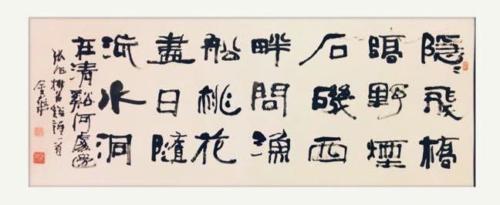 隱飛橋
隔野煙
石磯西
畔問漁
船桃花
盡日隨
流水洞
在清谿何處邊
張旭桃花谿詩一首